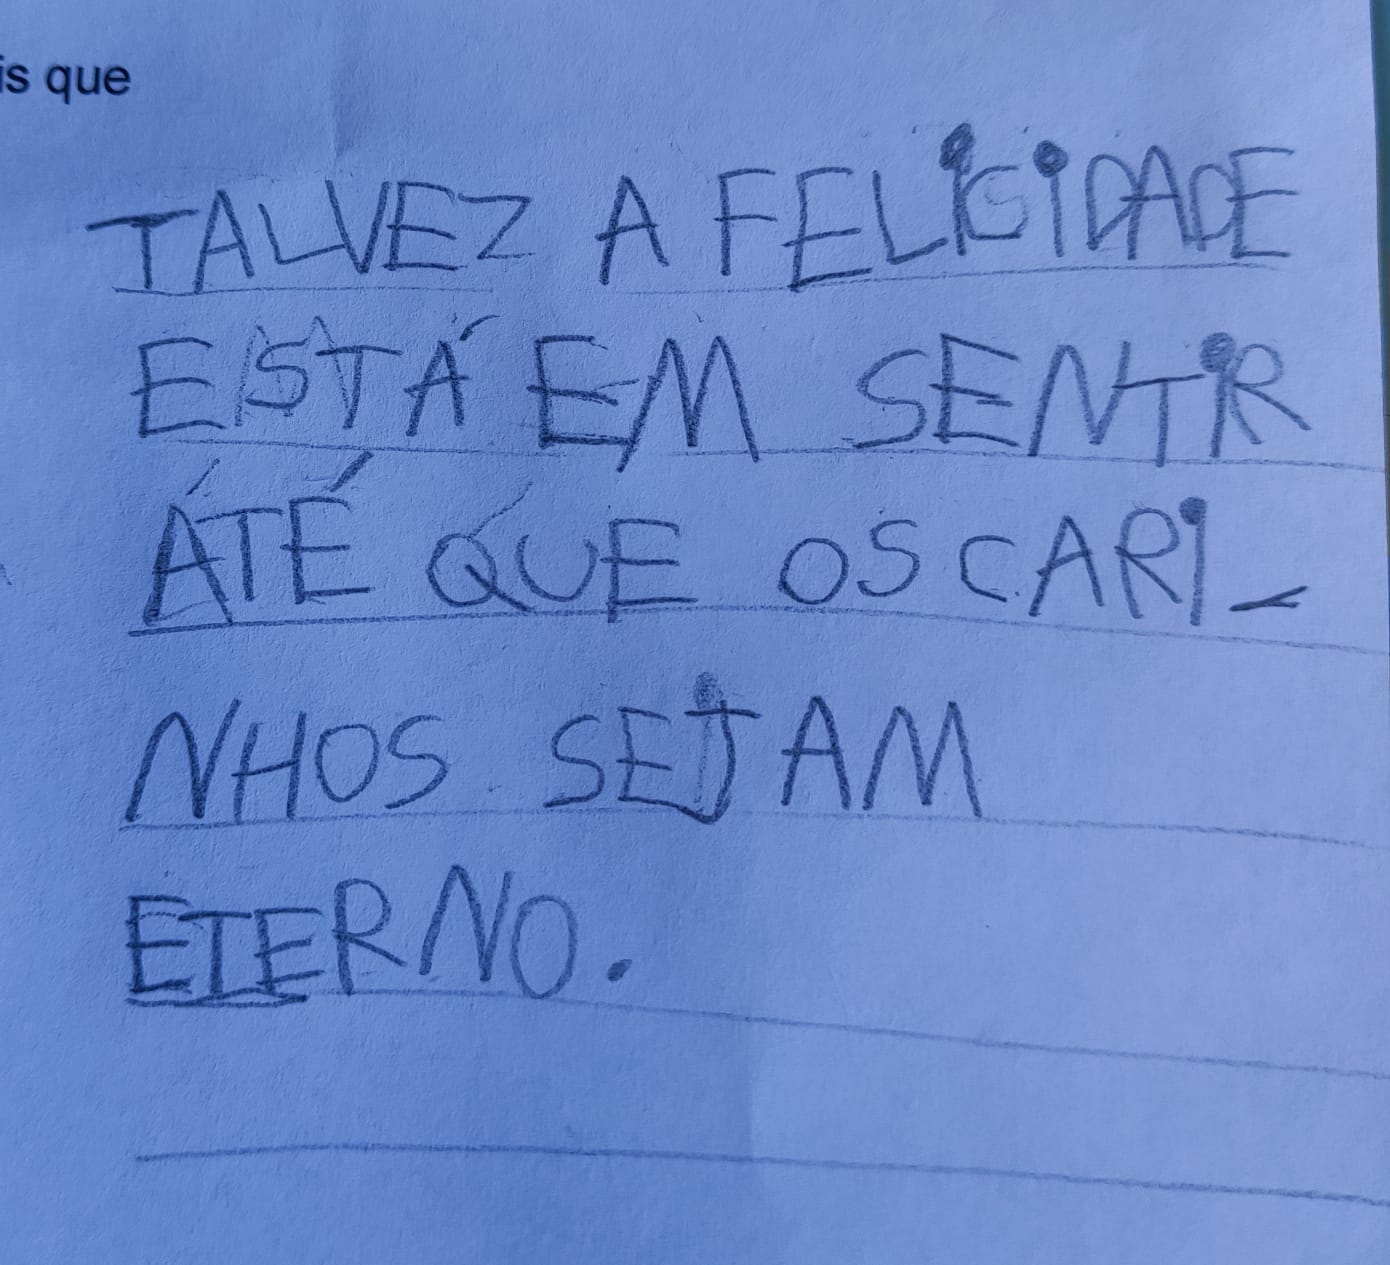 is que
TALVEZ A FELICIDADE
ESTÁ EM SENTIR
ÁTÉ QUE OS CARI-
NHOS SEJAM
ETERNO.